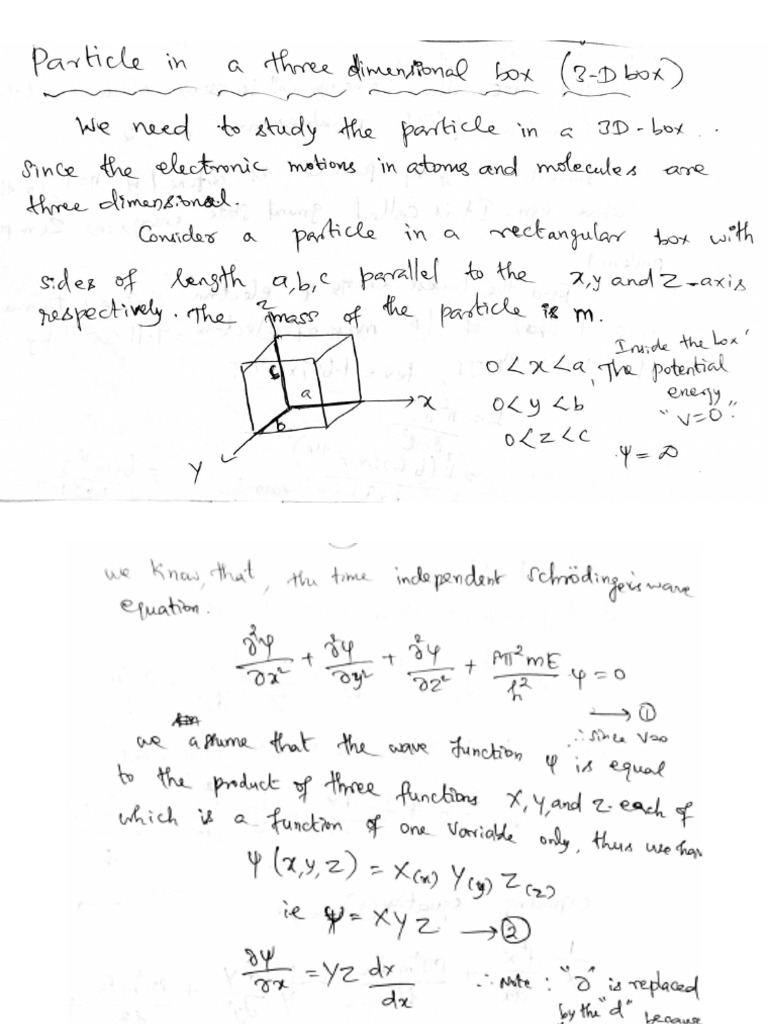 Particle in a three dimensional box (3-D box)
We need to study the particle in a 3D-box.
since the electronic motions in atoms and molecules are
three dimensional.
Consider a particle in a rectangular box with
sides of length a, b, c parallel to the x, y and z-axis
respectively. The mass of the particle is m.
z
c
a
b
x
y
0 < x < a,
0 < y < b
0 < z < c
Inside the box'
The potential
energy
"V=0".
ψ = ∞
we know, that, the time independent Schrödinger's wave
equation.
∂²ψ/∂x² + ∂²ψ/∂y² + ∂²ψ/∂z² + 8π²mE/h² ψ = 0
→ ①
∴ since V=0
we assume that the wave function ψ is equal
to the product of three functions X, Y, and Z. each of
which is a function of one variable only, thus we has
ψ (x, y, z) = X(x) Y(y) Z(z)
ie ψ = XYZ → ②
∂ψ/∂x = YZ dx/dx
∴ Note : "∂" is replaced
by the "d" because